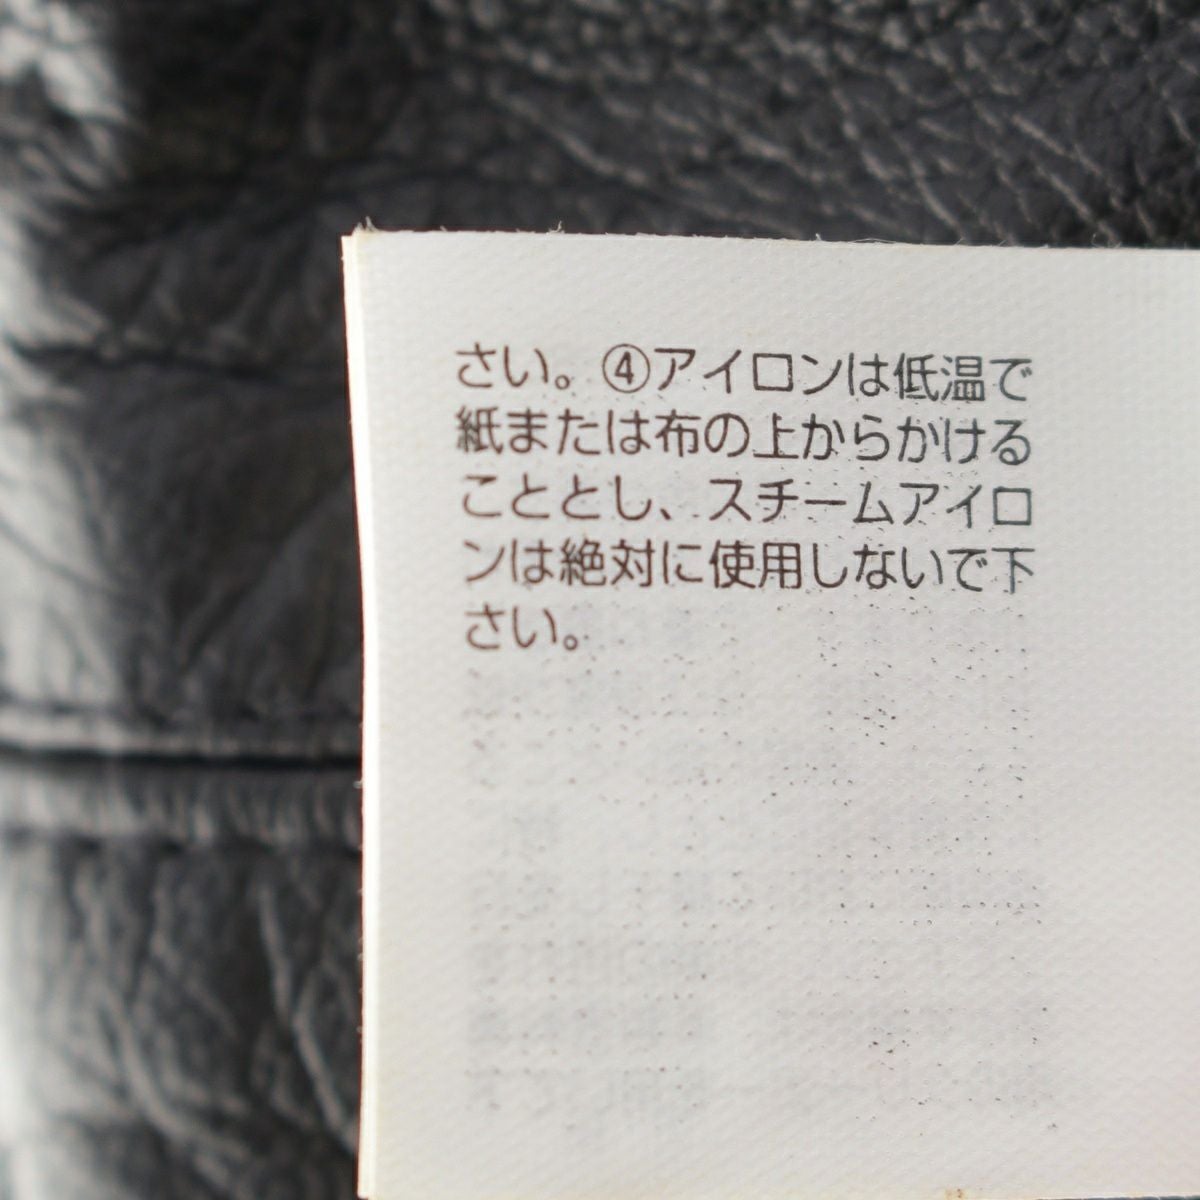 さい。④アイロンは低温で
紙または布の上からかける
こととし、スチームアイロ
ンは絶対に使用しないで下
さい。